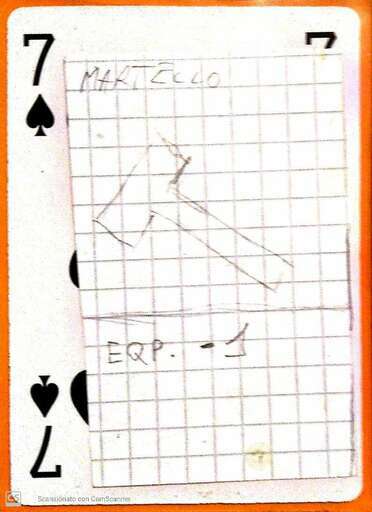 7
7
MARTELLO
EQP. -1
7
CS Scansionato con CamScanner